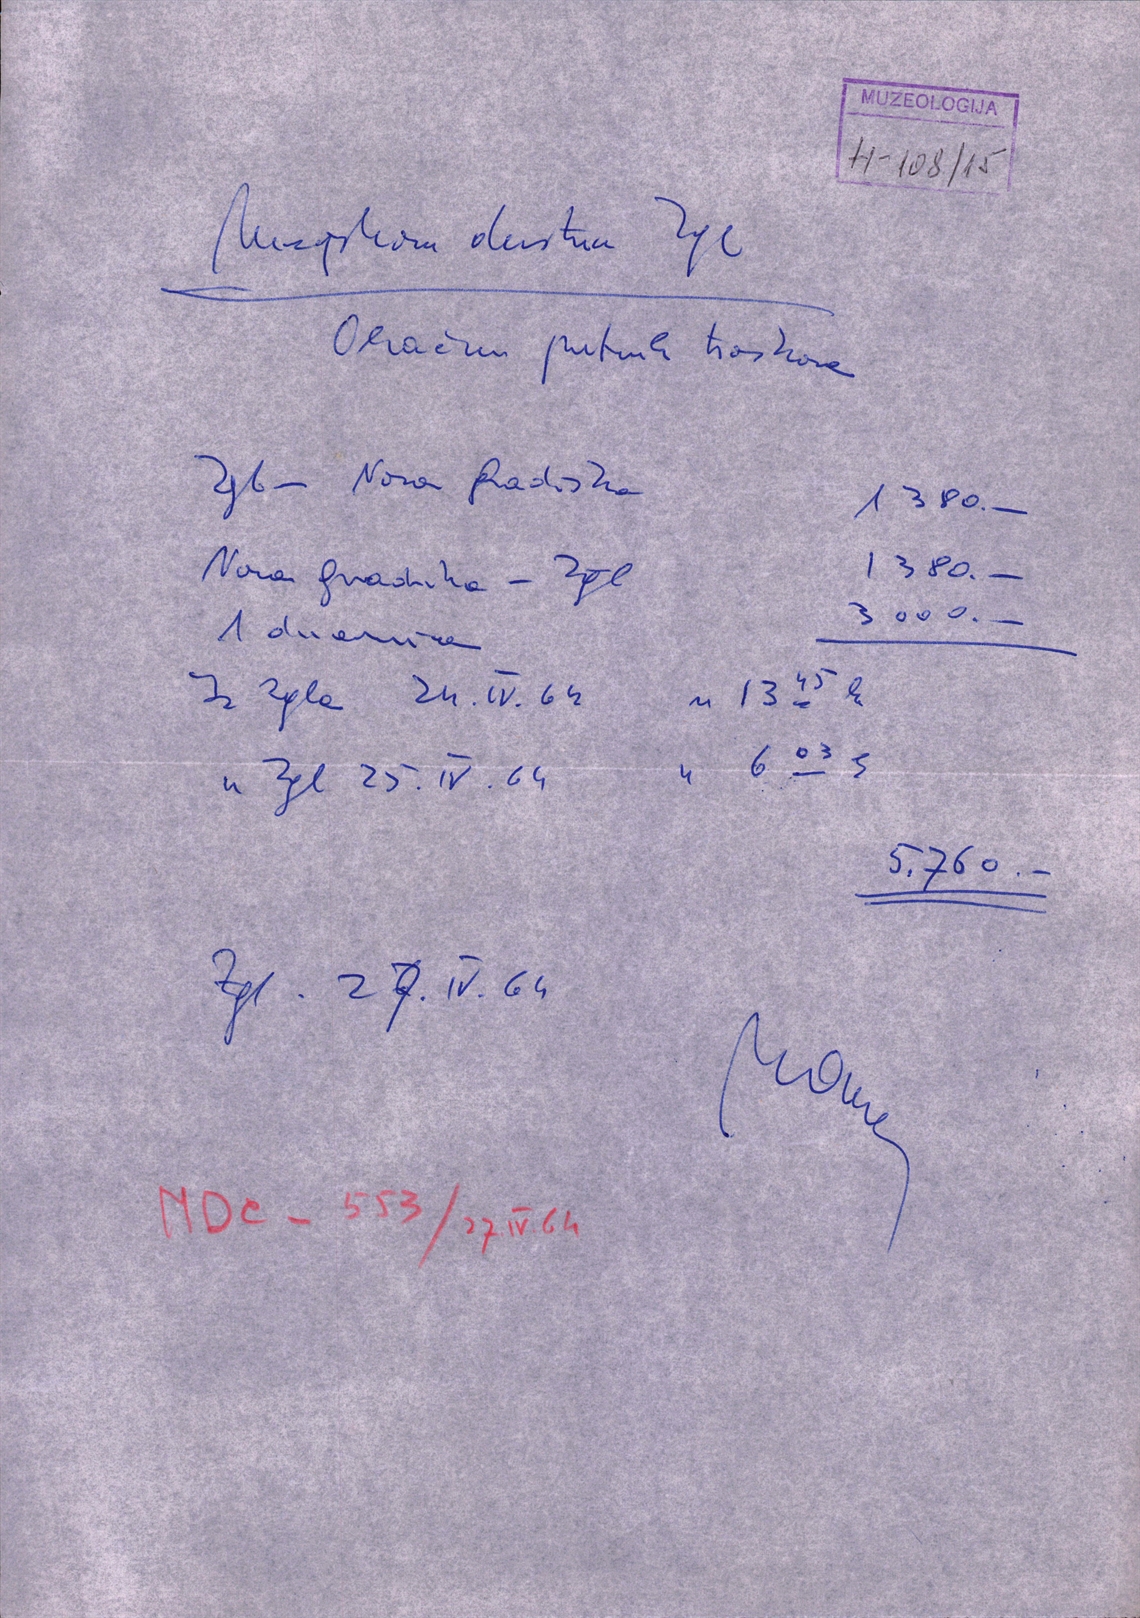 MUZEOLOGIJA
H-108/15
Muzejskom društvu Zgb
Obračun putnih troškova
Zgb — Nova Gradiška 1380.—
Nova Gradiška — Zgb 1380.—
1 dnevnica 3000.—
Iz Zgba 24.IV.64 u 13 45 h
u Zgb 25.IV.64 u 6 03 h
5.760.—
Zgb. 27.IV.64
MDC — 553/27.IV.64